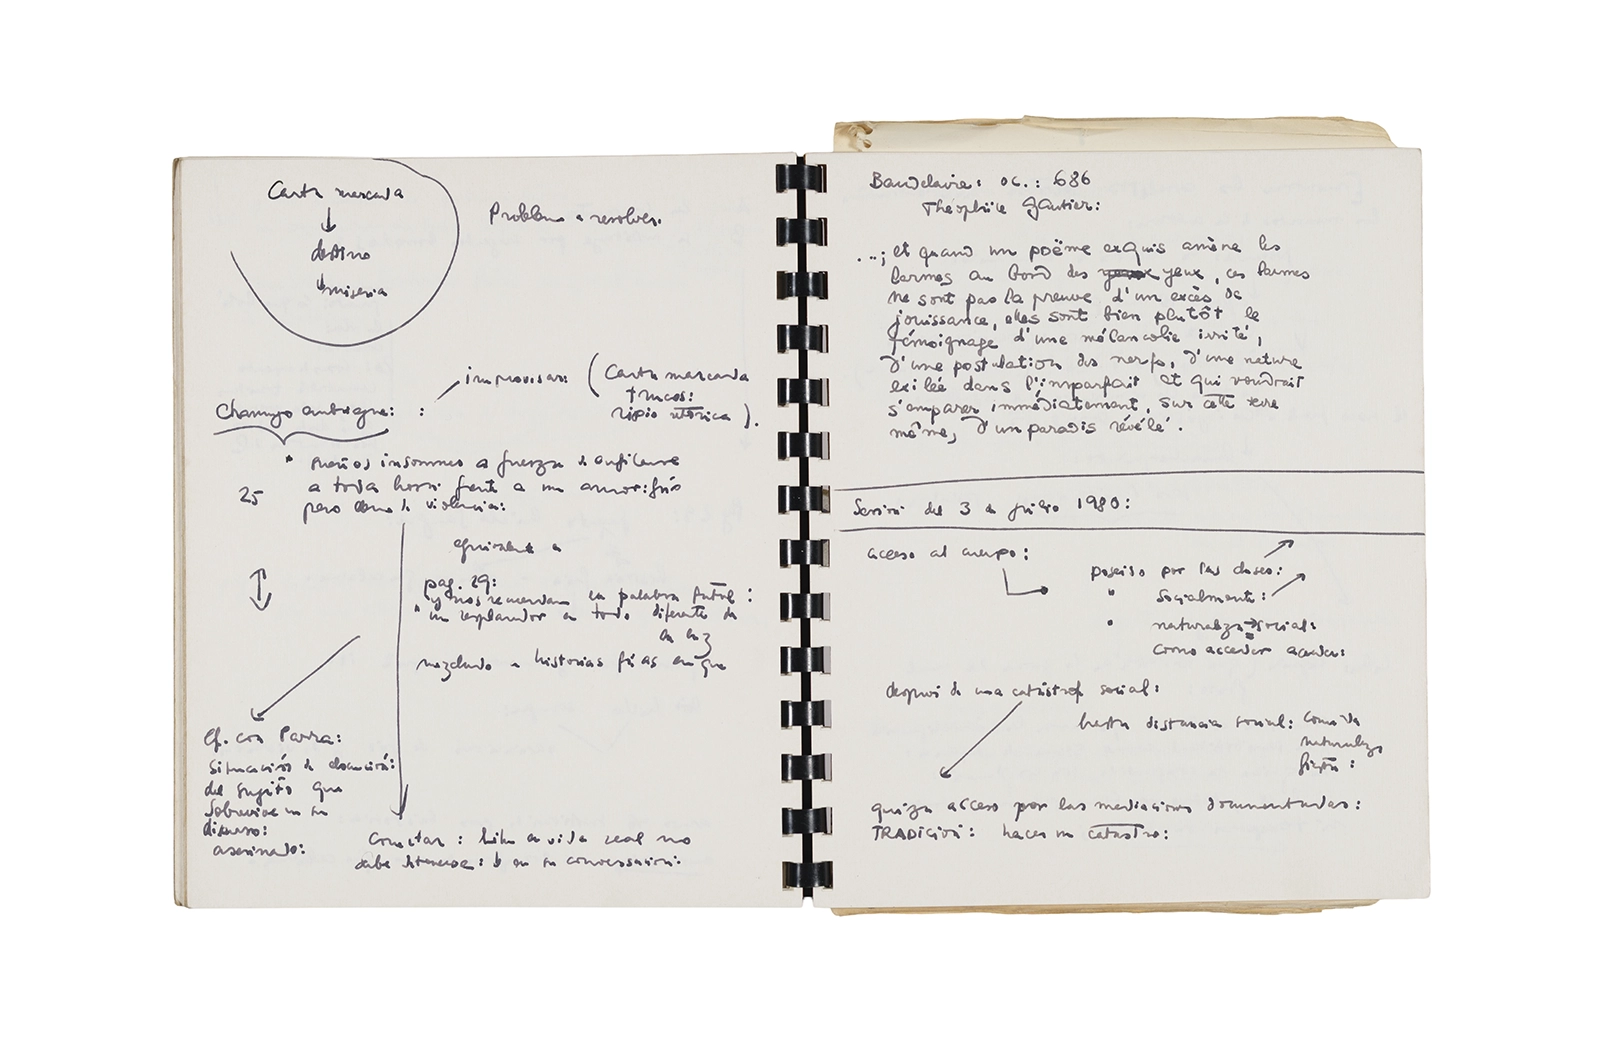 Carta marcada
destino
miseria
Problema a resolver.
improvisar: (Carta marcada
trucos:
ripio retórica).
Chamuyo :
25
sueños insomnes a fuerza de
a toda hora frente a un
pero de violencia:
equivalente a
pag. 29:
"y nos remuerdan la palabra :
"un resplandor a todo diferente de
la luz
mezclando a historias frías en que
Cf. con Parra:
Situación de elocución:
del sujeto que
sobrevive en su
discurso:
asesinado:
Conectar: la vida real no
sabe detenerse: o en su conversación.
Baudelaire: oc.: 686
Théophile Gautier:
...; et quand un poëme exquis amène les
larmes au bord des yeux yeux, ces larmes
ne sont pas la preuve d'un excès de
jouissance, elles sont bien plutôt le
témoignage d'une mélancolie irrité,
d'une postulation des nerfs, d'une nature
exilée dans l'imparfait et qui voudrait
s'emparer immédiatement, sur cette terre
même, d'un paradis révélé.
Sesión del 3 de julio 1980:
acceso al cuerpo:
poseido por las clases:
" socialmente:
" naturaleza → social:
como acceder acceder:
después de una catástrofe social:
hasta distancia social: comida
naturaleza
quizá acceso por las mediaciones documentadas:
TRADICIÓN: hacer un catastro: